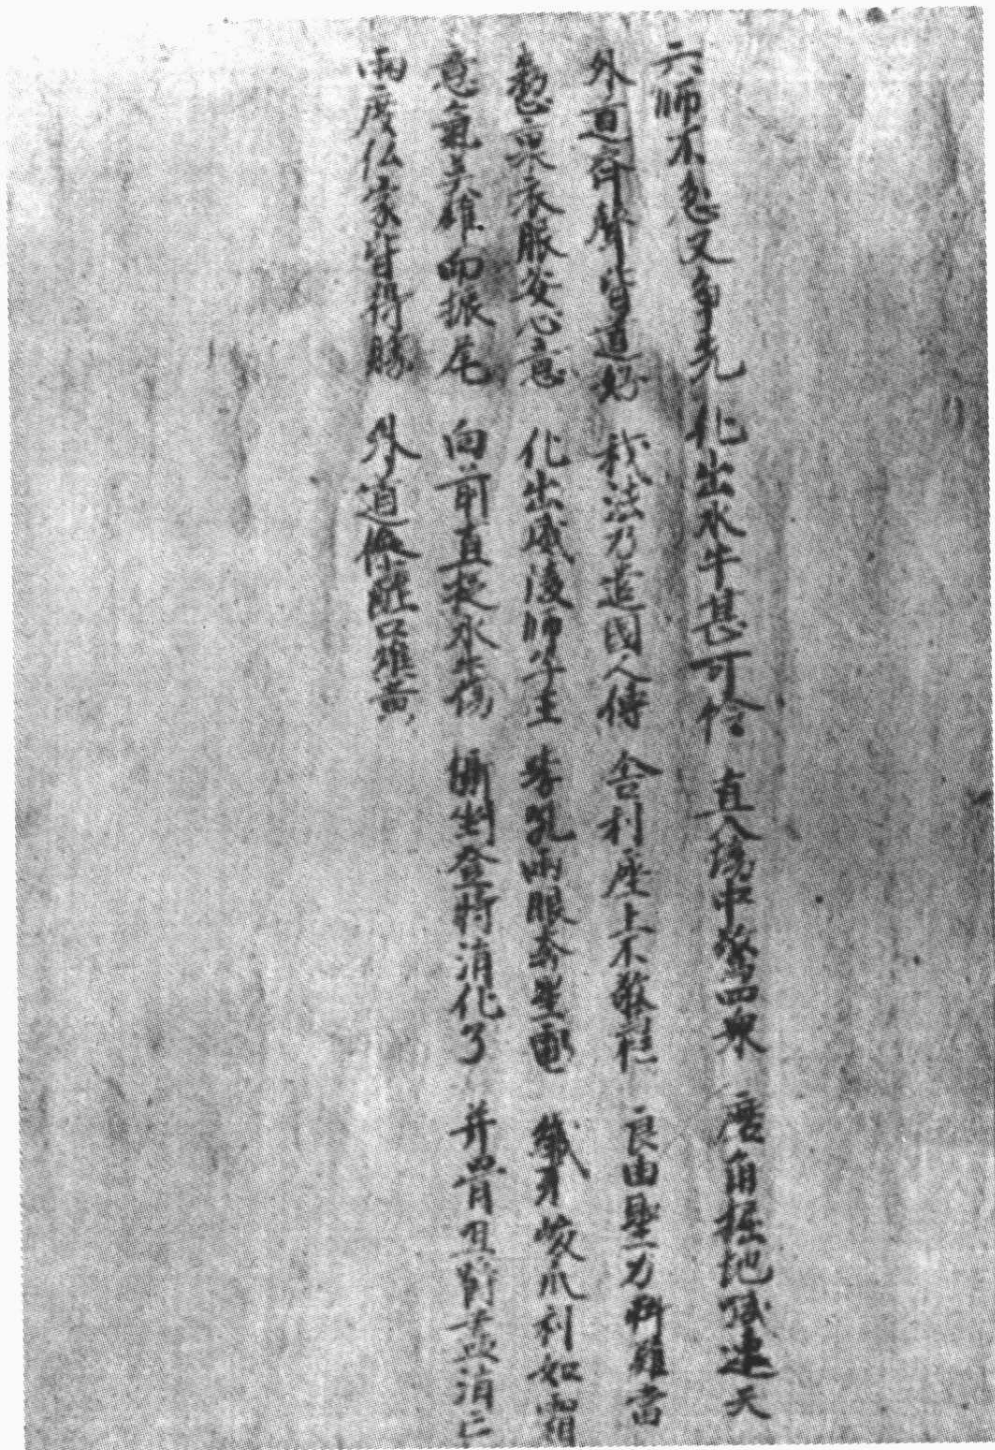 六師不忿又爭先 化出水牛甚可怜 直入場中驚四衆 磨角掘地喊連天
外道齊聲皆道好 我法乃遣國人傳 舍利座上不驚忙 良由聖力料難當
懃衆衣服安心意 化出威陵師子王 哮吼兩眼奔星電 纖牙峻爪利如霜
意氣英雄而振尾 向前直捉水牛傷 慚剉登時消化了 并骨咀嚼盡消亡
兩度仏家皆得勝 外道 口雄黄